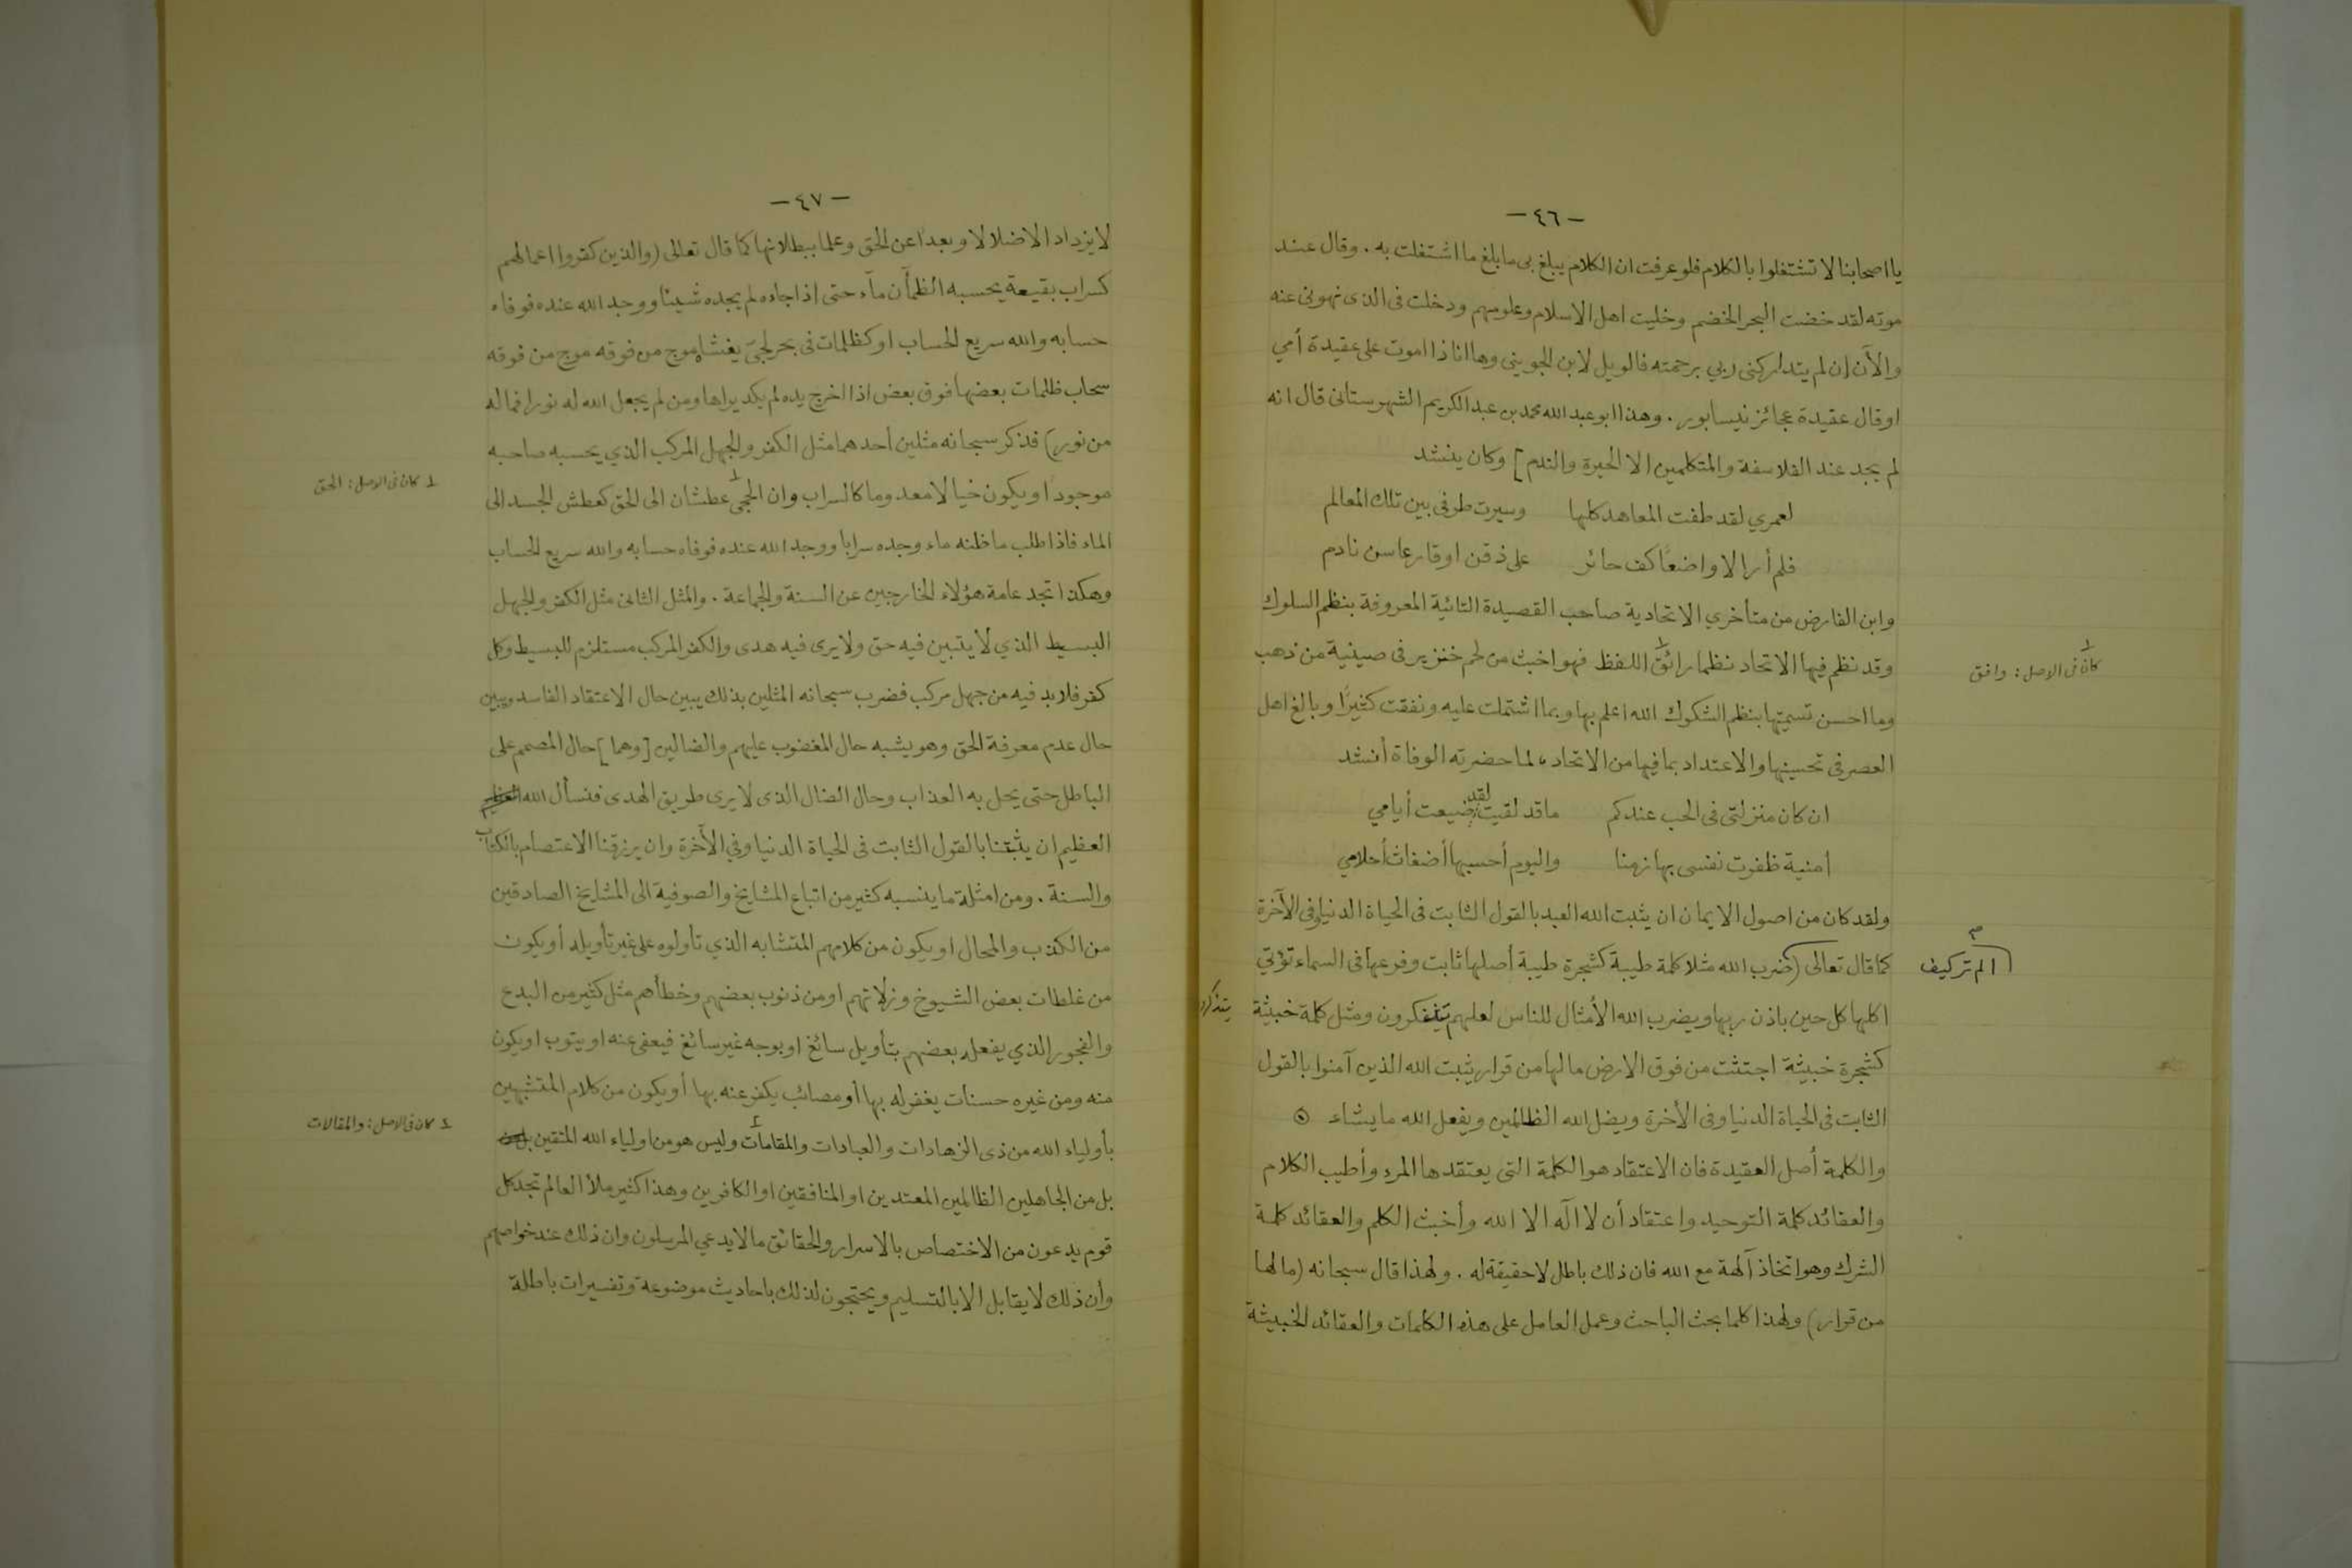 -٤٦-
يا اصحابنا لا تشتغلوا بالكلام فلو عرفت ان الكلام يبلغ بى ما بلغ ما اشتغلت به . وقال عند
موته لقد خضت البحر الخضم وخليت اهل الاسلام وعلومهم ودخلت فى الذى نهونى عنه
والآن ان لم يتداركنى ربي برحمته فالويل لابن الجوينى وها انا ذا اموت على عقيدة أمي
او قال عقيدة عجائز نيسابور . وهذا ابو عبد الله محمد بن عبد الكريم الشهرستانى قال انه
لم يجد عند الفلاسفة والمتكلمين الا الحيرة والندم] وكان ينشد
لعمري لقد طفت المعاهد كلها وسيرت طرفى بين تلك المعالم
فلم أر الا واضعًا كف حائر على ذقن او قارعا سن نادم
وابن الفارض من متأخري الاتحادية صاحب القصيدة التائية المعروفة بنظم السلوك
وقد نظم فيها الاتحاد نظما رائق١ اللفظ فهو اخبث من لحم خنزير فى صينية من ذهب
١ كان فى الاصل : وافق
وما احسن تسميتها بنظم الشكوك الله اعلم بها وبما اشتملت عليه ونفقت كثيرًا وبالغ اهل
العصر فى تحسينها والاعتداد بما فيها من الاتحاد، لما حضرته الوفاة أنشد
ان كان منزلتى فى الحب عندكم ما قد لقيت لقد ضيعت أيامي
أمنية ظفرت نفسى بها زمنا واليوم أحسبها أضغاث أحلامي
ولقد كان من اصول الايمان ان يثبت الله العبد بالقول الثابت فى الحياة الدنيا وفى الآخرة
كما قال تعالى (ضرب الله مثلا كلمة طيبة كشجرة طيبة أصلها ثابت وفرعها فى السماء تؤتي
الم تر كيف
اكلها كل حين باذن ربها ويضرب الله الأمثال للناس لعلهم يتفكرون ومثل كلمة خبيثة
كشجرة خبيثة اجتثت من فوق الارض ما لها من قرار يثبت الله الذين آمنوا بالقول
الثابت فى الحياة الدنيا وفى الأخرة ويضل الله الظالمين ويفعل الله ما يشاء
والكلمة أصل العقيدة فان الاعتقاد هو الكلمة التى يعتقدها المرء وأطيب الكلام
والعقائد كلمة التوحيد واعتقاد أن لا اله الا الله وأخبث الكلم والعقائد كلمة
الشرك وهو اتخاذ آلهة مع الله فان ذلك باطل لا حقيقة له . ولهذا قال سبحانه (ما لها
من قرار) ولهذا كلما بحث الباحث وعمل العامل على هذه الكلمات والعقائد الخبيثة
-٤٧-
لا يزداد الا ضلالا وبعدا عن الحق وعلما ببطلانها كما قال تعالى (والذين كفروا اعمالهم
كسراب بقيعة يحسبه الظمأن مآء حتى اذا جاءه لم يجده شيئا ووجد الله عنده فوفاه
حسابه والله سريع الحساب او كظلمات فى بحر لجىّ يغشاه موج من فوقه موج من فوقه
سحاب ظلمات بعضها فوق بعض اذا اخرج يده لم يكد يراها ومن لم يجعل الله له نورا فما له
من نور) فذكر سبحانه مثلين أحدهما مثل الكفر والجهل المركب الذي يحسبه صاحبه
موجودا ويكون خيالا معدوما كالسراب وان الحجى١ عطشان الى الحق كعطش الجسد الى
١ كان فى الاصل : الحق
الماء فاذا طلب ما ظنه ماء وجده سرابا ووجد الله عنده فوفاه حسابه والله سريع الحساب
وهكذا تجد عامة هؤلاء الخارجين عن السنة والجماعة . والمثل الثانى مثل الكفر والجهل
البسيط الذي لا يتبين فيه حق ولا يرى فيه هدى والكفر المركب مستلزم للبسيط وكل
كفر فلا بد فيه من جهل مركب فضرب سبحانه المثلين بذلك يبين حال الاعتقاد الفاسد ويبين
حال عدم معرفة الحق وهو يشبه حال المغضوب عليهم والضالين [وهما] حال المصمم على
الباطل حتى يحل به العذاب وحال الضال الذى لا يرى طريق الهدى فنسأل الله العظيم
العظيم ان يثبتنا بالقول الثابت فى الحياة الدنيا وفي الآخرة وان يرزقنا الاعتصام بالكتاب
والسنة . ومن امثلة ما ينسبه كثير من اتباع المشايخ والصوفية الى المشايخ الصادقين
من الكذب والمحال او يكون من كلامهم المتشابه الذي تأولوه على غير تأويله أو يكون
من غلطات بعض الشيوخ وزلاتهم او من ذنوب بعضهم وخطأهم مثل كثير من البدع
والفجور الذي يفعله بعضهم بتأويل سائغ او بوجه غير سائغ فيعفى عنه او يتوب او يكون
منه ومن غيره حسنات يغفر له بها أو مصائب يكفر عنه بها أو يكون من كلام المتشبهين
بأولياء الله من ذى الزهادات والعبادات والمقامات٢ وليس هو من اولياء الله المتقين
٢ كان فى الاصل : والمقالات
بل من الجاهلين الظالمين المعتدين او المنافقين او الكافرين وهذا كثير ملأ العالم تجد كل
قوم يدعون من الاختصاص بالاسرار والحقائق ما لا يدعي المرسلون وان ذلك عند خواصهم
وأن ذلك لا يقابل الا بالتسليم ويحتجون لذلك باحاديث موضوعة وتفسيرات باطلة